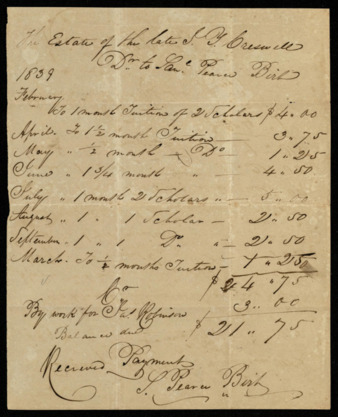 The Estate of the late S. Y. Creswell
Dr. to Saml. Pearce Birt
1839
February
To 1 month Tuition of 2 Scholars $ 4 " 00
April To 1 1/2 month Tuition — 3 " 75
May " 1/2 month — Do — 1 " 25
June " 1 3/4 month " — 4 " 50
July " 1 month 2 Scholars " — 5 " 00
August " 1 " 1 Scholar — 2 " 50
September 1 " 1 Do " — 2 " 50
March To 1/2 months Tuition — 1 " 25
$ 24 " 75
Cr
By work for Robinson 3 " 00
Balance due $ 21 " 75
Recieved Payment
S. Pearce Birt